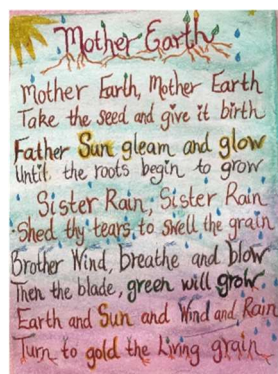 Mother Earth
Mother Earth, Mother Earth
Take the seed and give it birth
Father Sun gleam and glow
Until the roots begin to grow
Sister Rain, Sister Rain
Shed thy tears to swell the grain
Brother Wind, breathe and blow
Then the blade, green will grow
Earth and Sun and Wind and Rain
Turn to gold the living grain